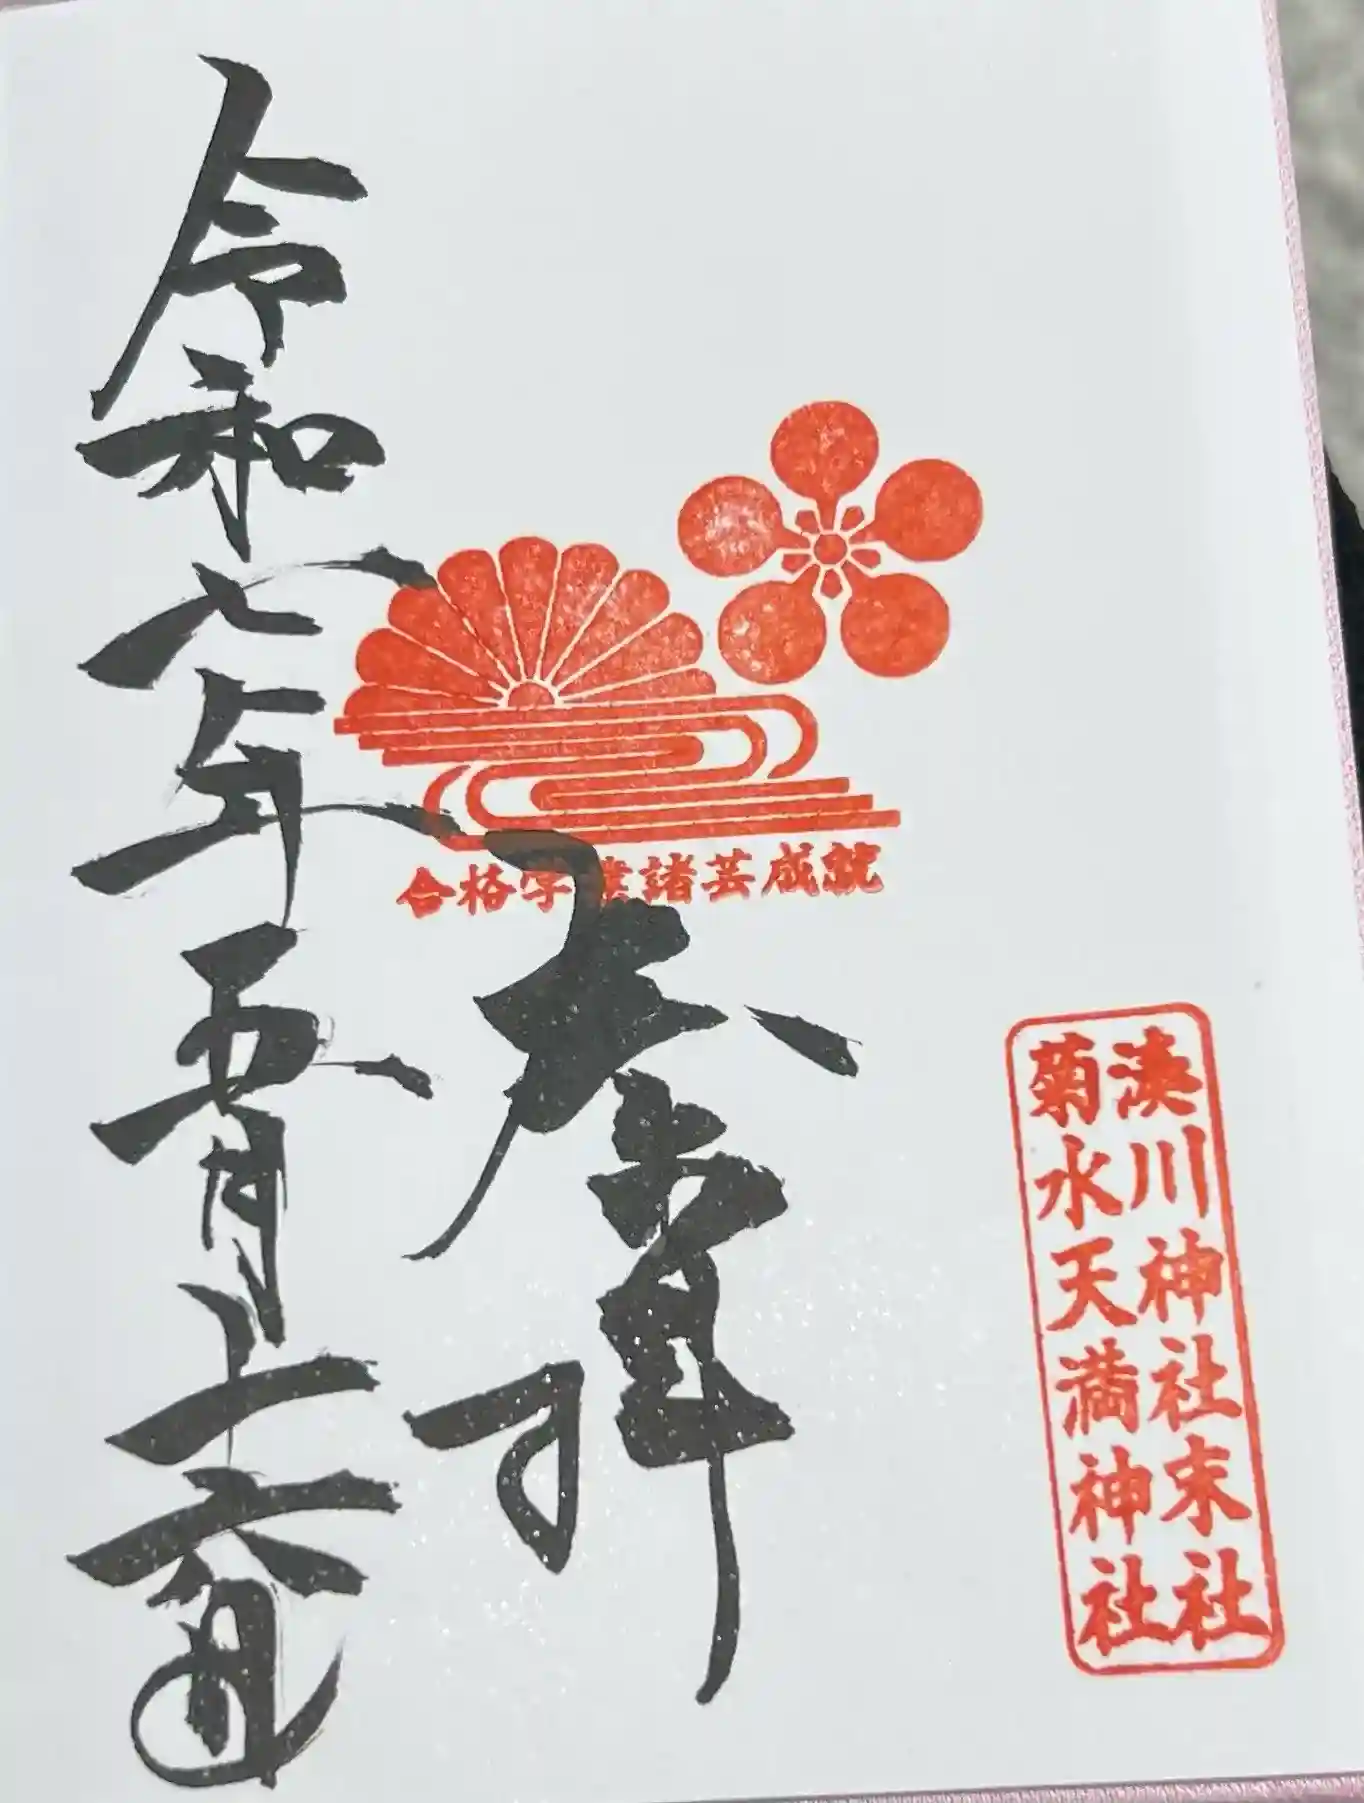 湊川神社末社
菊水天満神社
合格学業諸芸成就
奉拝
令和七年五月十六日